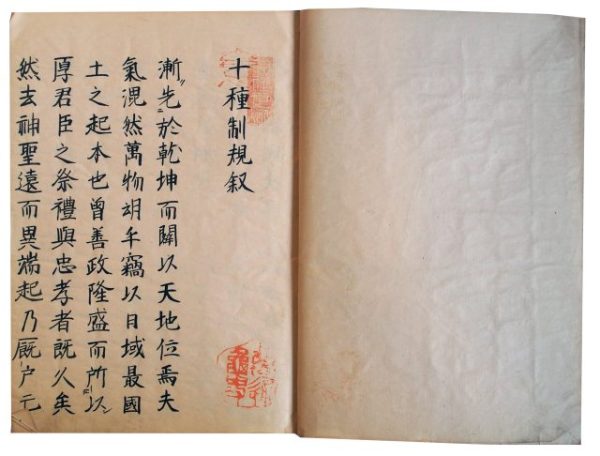 十種制規叙
漸先於乾坤而闢以天地位焉夫
氣混然萬物胡乎竊以日域最國
土之起本也曾善政隆盛而所以
厚君臣之祭禮與忠孝者既久矣
然去神聖遠而異端起乃厩户元